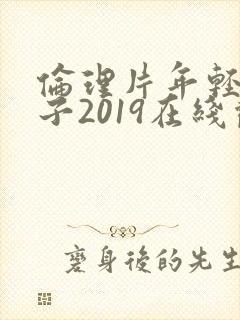 倫理片年輕
子2019在綫
髮身後的先生